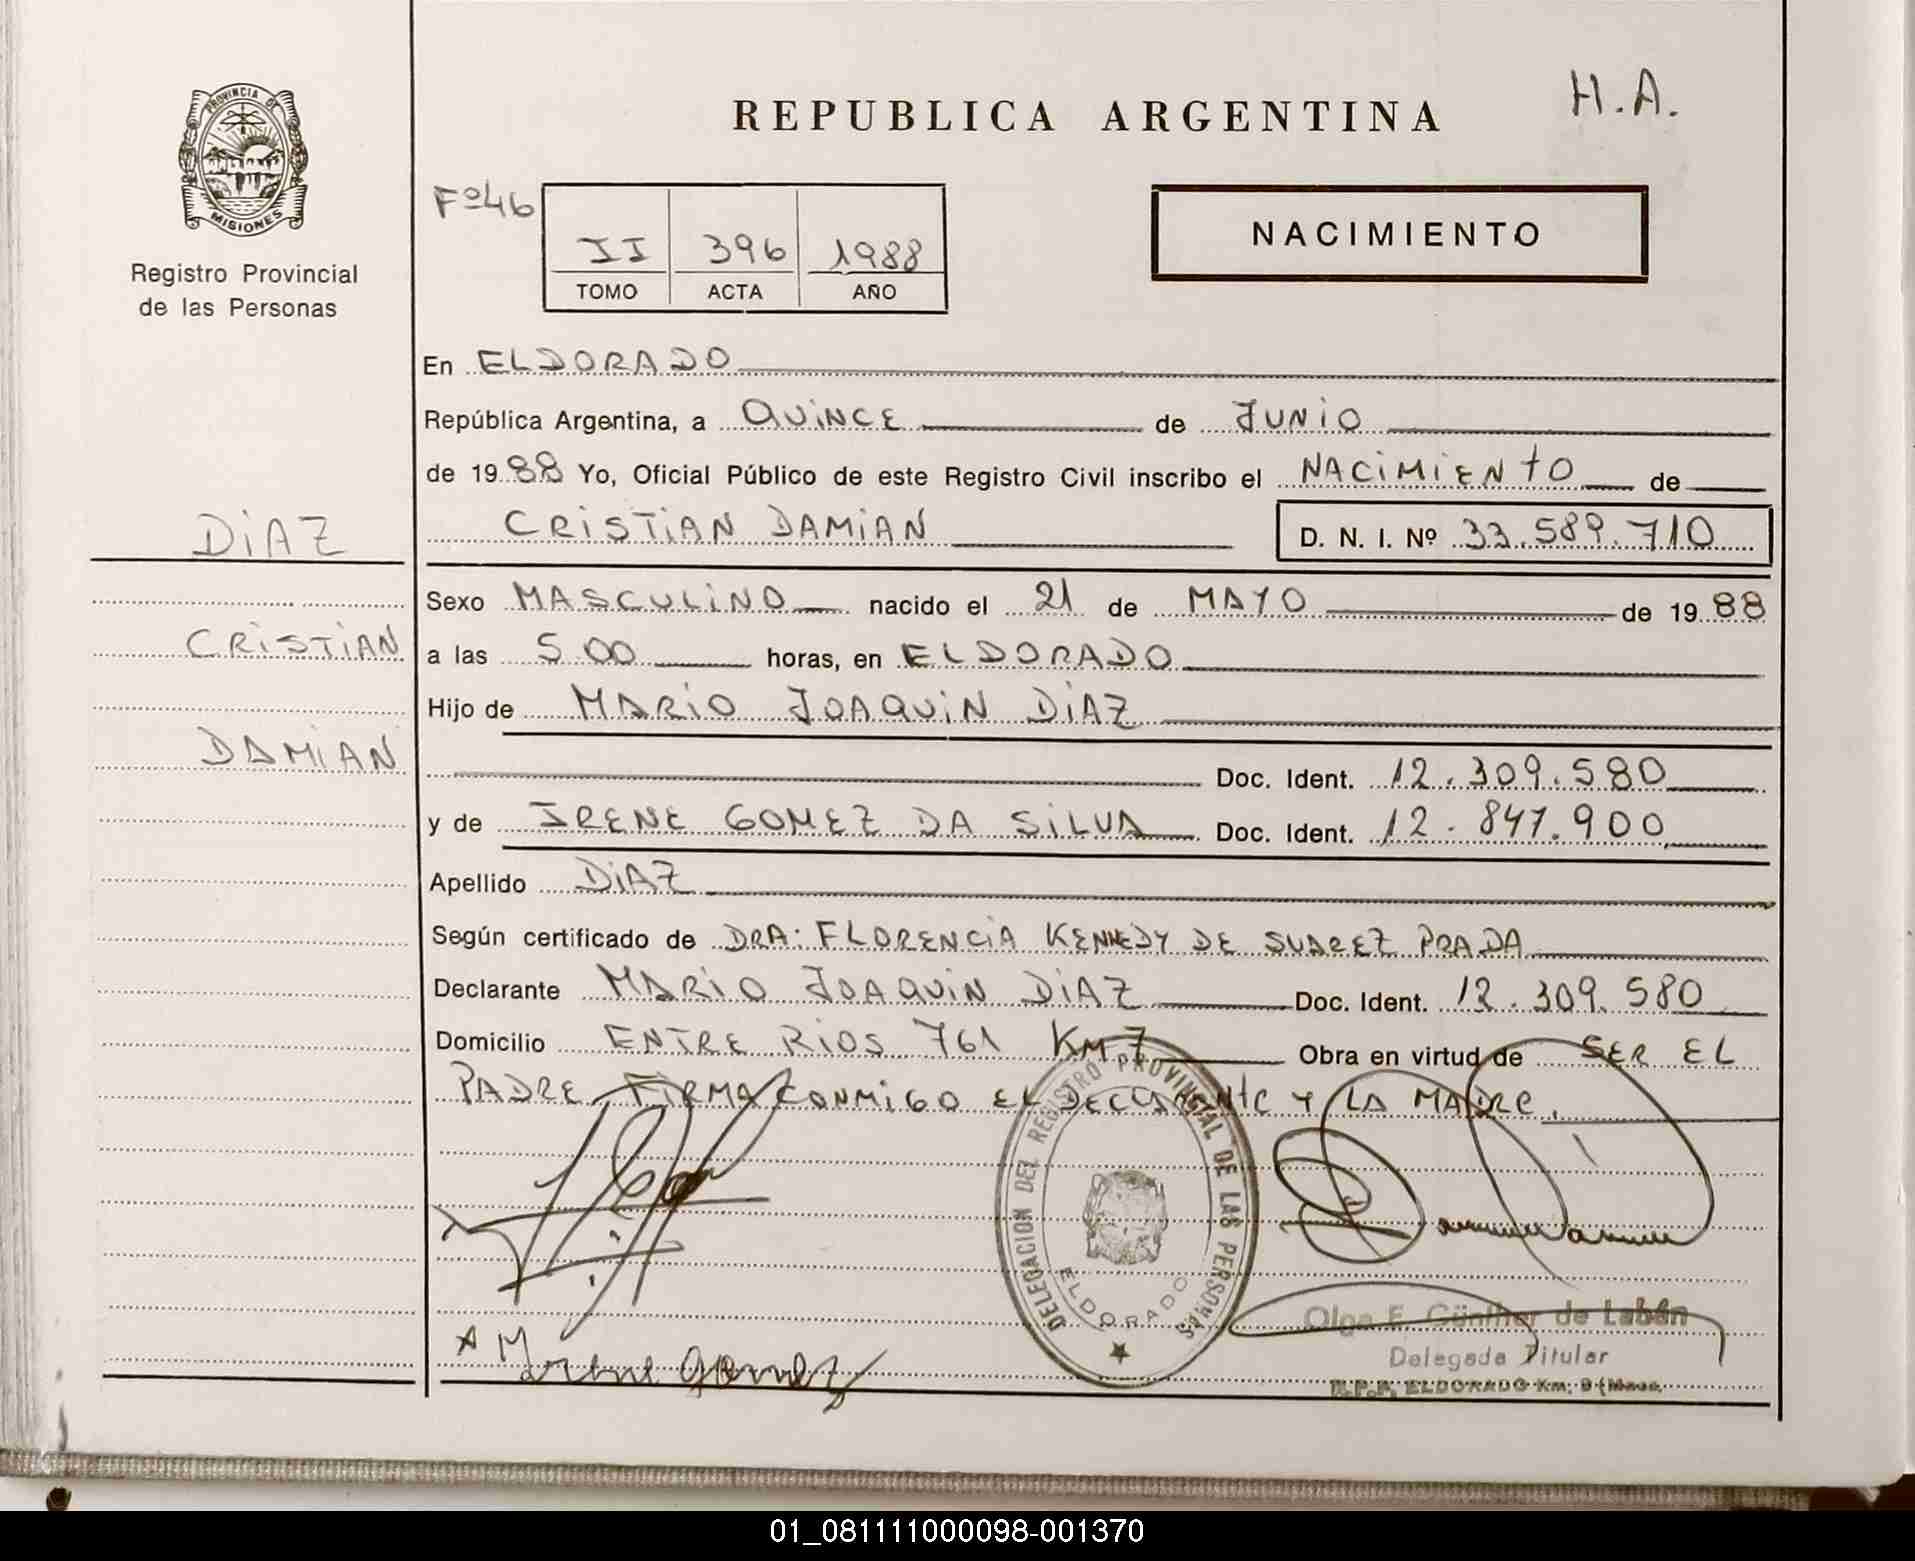 PROVINCIA DE
MISIONES
Registro Provincial
de las Personas
REPUBLICA ARGENTINA
H.A.
Fº46
II 396 1988
TOMO ACTA AÑO
NACIMIENTO
En ELDORADO
República Argentina, a QUINCE de JUNIO
de 1988 Yo, Oficial Público de este Registro Civil inscribo el NACIMIENTO de
DIAZ
CRISTIAN DAMIAN D. N. I. Nº 33.589.710
Sexo MASCULINO nacido el 21 de MAYO de 1988
CRISTIAN
a las 5 00 horas, en ELDORADO
Hijo de MARIO JOAQUIN DIAZ
DAMIAN
Doc. Ident. 12.309.580
y de IRENE GOMEZ DA SILVA Doc. Ident. 12.847.900
Apellido DIAZ
Según certificado de DRA. FLORENCIA KENNEDY DE SUAREZ PRADA
Declarante MARIO JOAQUIN DIAZ Doc. Ident. 12.309.580
Domicilio ENTRE RIOS 761 KM 7 Obra en virtud de SER EL
PADRE FIRMA CONMIGO EL DECLARANTE Y LA MADRE.
DELEGACION DEL REGISTRO PROVINCIAL DE LAS PERSONAS
ELDORADO
Olga E. Günther de Labán
Delegada Titular
R.P.P. ELDORADO Km. 9
Irene Gomez
01_081111000098-001370